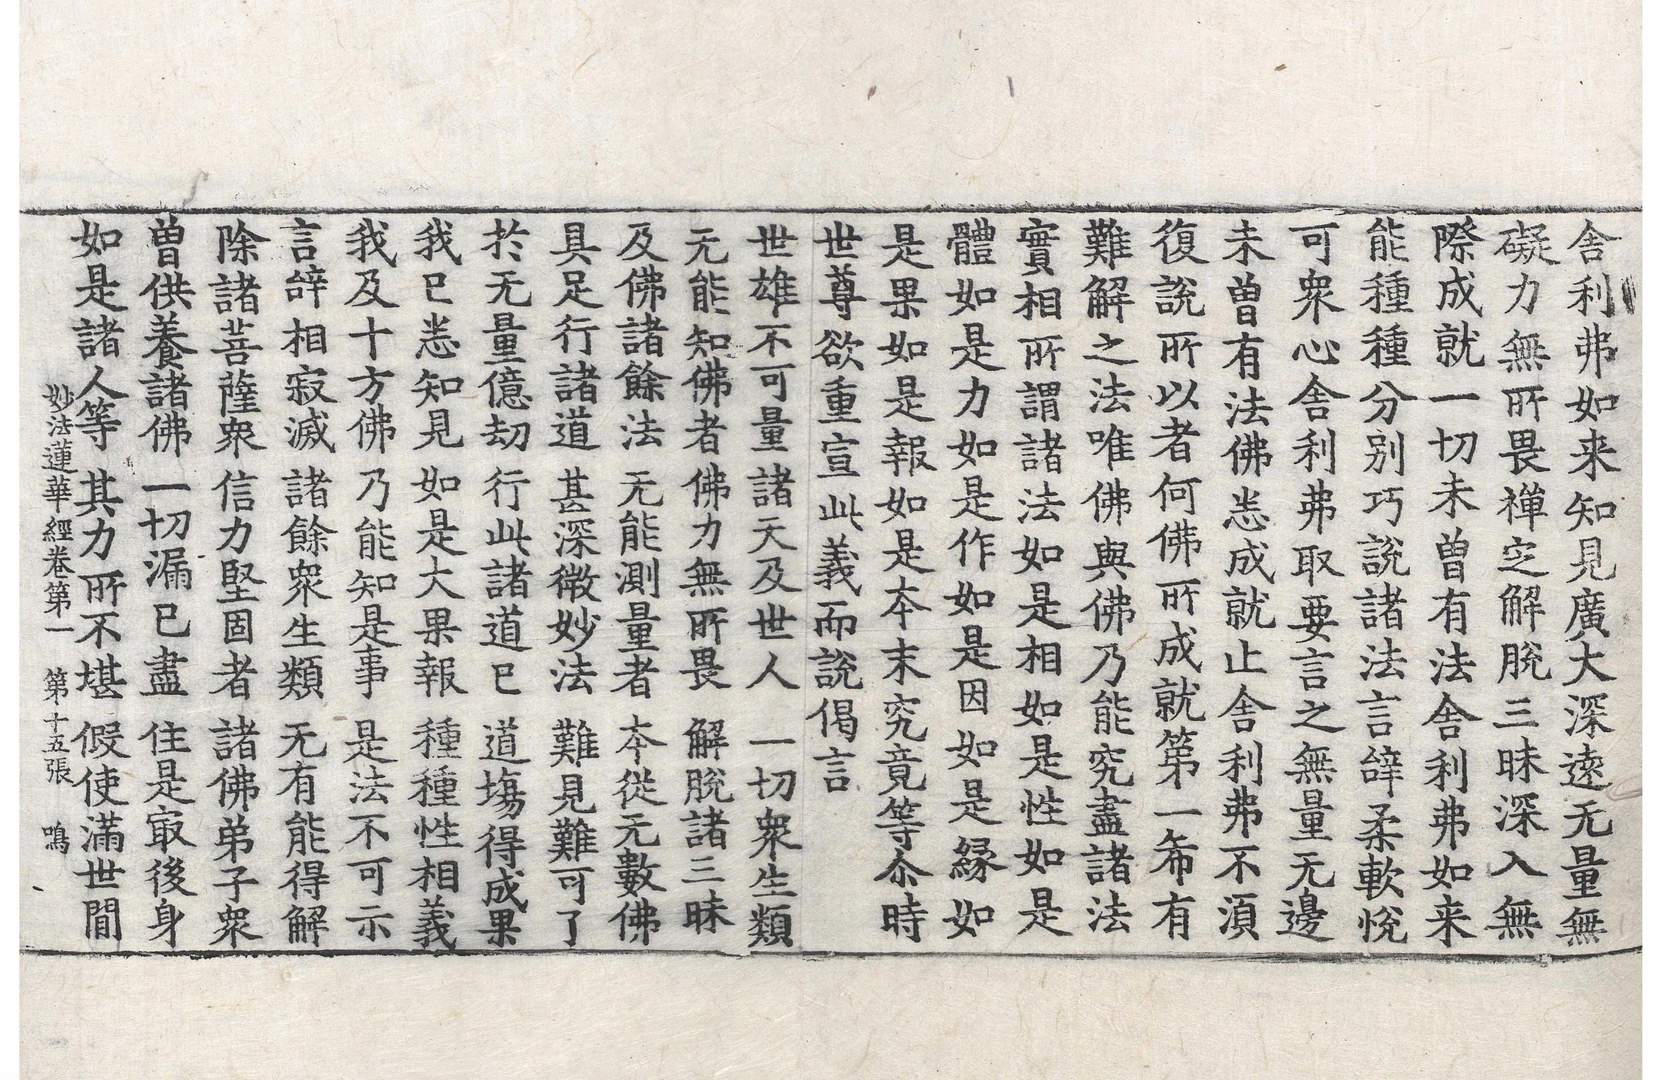 舍利弗如来知見廣大深逺无量無
礙力無所畏禪㝎解脫三昧深入無
際成就一切未曾有法舍利弗如来
能種種分別巧說諸法言辝柔軟悅
可衆心舍利弗取要言之無量无邊
未曾有法佛悉成就止舍利弗不湏
復說所以者何佛所成就第一希有
難解之法唯佛與佛乃能究盡諸法
實相所謂諸法如是相如是性如是
體如是力如是作如是因如是緣如
是果如是報如是夲末究竟等尒時
世尊欲重宣此義而說偈言
世雄不可量 諸天及世人 一切衆生類
无能知佛者 佛力無所畏 解脫諸三昧
及佛諸餘法 无能測量者 夲從无數佛
具足行諸道 甚深微妙法 難見難可了
扵无量億劫 行此諸道已 道塲得成果
我已悉知見 如是大果報 種種性相義
我及十方佛 乃能知是事 是法不可示
言辝相寂滅 諸餘衆生類 无有能得解
除諸菩薩衆 信力堅固者 諸佛弟子衆
曾供養諸佛 一切漏已盡 住是㝡後身
如是諸人等 其力所不堪 假使滿世間
妙法蓮華經卷第一 第十五張 鳴